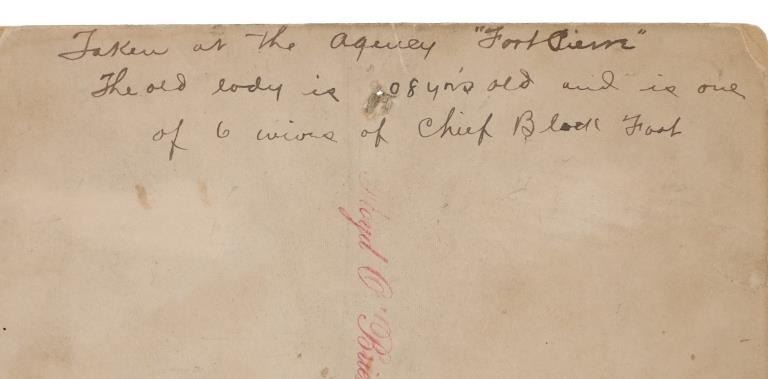 Taken at the Agency "Fort Pierre"
The old lady is 108 yrs old and is one
of 6 wives of Chief Black Foot
Floyd O'Brie